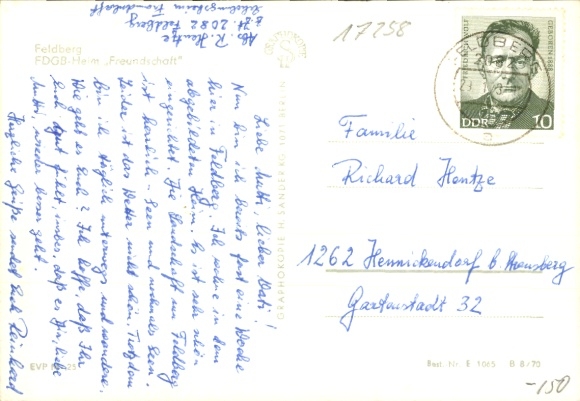 Abs. R. Hentze
z. Zt. 2082 Feldberg
Erholungsheim Freundschaft
Feldberg
FDGB-Heim „Freundschaft"
Liebe Mutti, lieber Vati!
Nun bin ich bereits fast eine Woche
hier in Feldberg. Ich wohne in dem
abgebildeten Heim. Es ist sehr schön
eingerichtet. Die Landschaft um Feldberg
ist herrlich - Seen und nochmals Seen.
Leider ist das Wetter nicht schön. Trotzdem
bin ich täglich unterwegs und wandere.
Wie geht es Euch? Ich hoffe, daß Ihr
Euch gut fühlt, insbes. daß es Dir, liebe
Mutti, wieder besser geht.
Herzliche Grüße sendet Euch Reinhard
EVP
GRAPHOKOPIE H. SANDER KG 1071 BERLIN
17258
GEBOREN 1888
DDR 10
Familie
Richard Hentze
1262 Hennickendorf b. Strausberg
Gartenstadt 32
Best. Nr. E 1065 B 8/70
-150